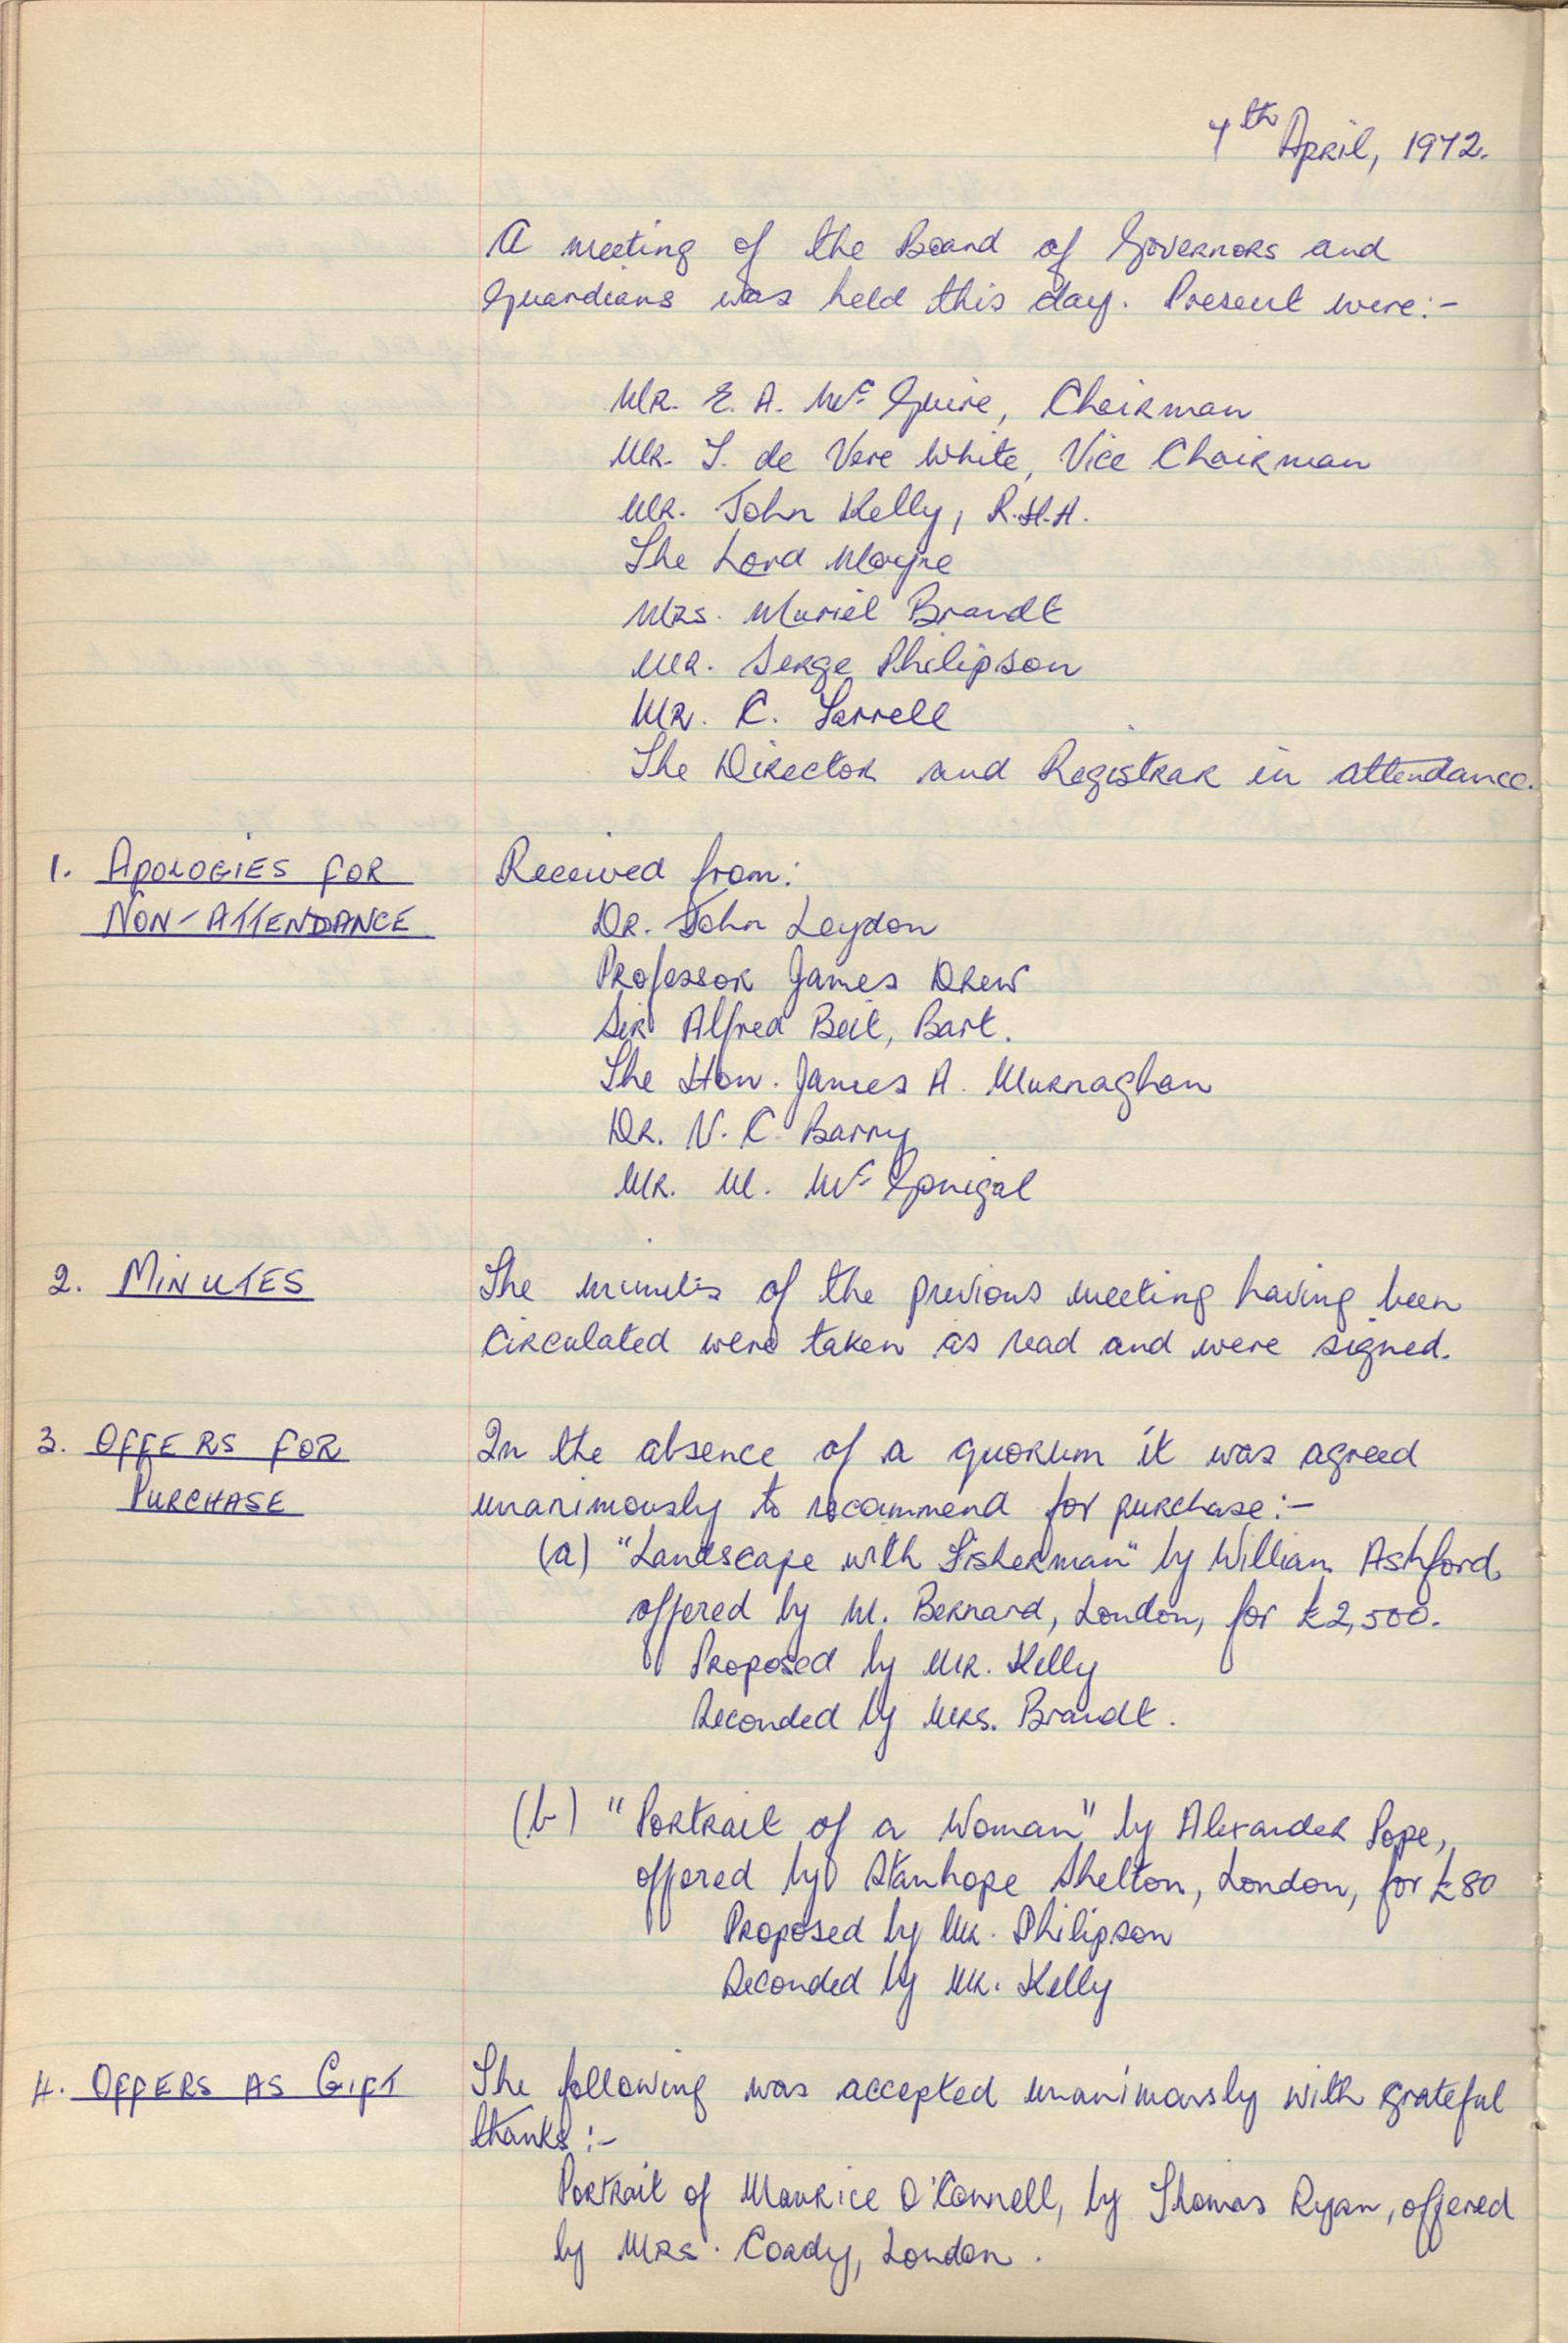 7th April, 1972.
A meeting of the Board of Governors and
Guardians was held this day. Present were:-
Mr. E. A. Mc Guire, Chairman
Mr. T. de Vere White, Vice Chairman
Mr. John Kelly, R.H.A.
The Lord Moyne
Mrs. Muriel Brandt
Mr. Serge Philipson
Mr. C. Farrell
The Director and Registrar in attendance.
1. APOLOGIES FOR Received from:
NON-ATTENDANCE Dr. John Leydon
Professor James Drew
Sir Alfred Beit, Bart.
The Hon. James A. Murnaghan
Dr. V. C. Barry
Mr. M. Mc Gonigal
2. MINUTES The minutes of the previous meeting having been
circulated were taken as read and were signed.
3. OFFERS FOR In the absence of a quorum it was agreed
PURCHASE unanimously to recommend for purchase:-
(a) "Landscape with Fisherman" by William Ashford,
offered by M. Bernard, London, for £2,500.
Proposed by Mr. Kelly
Seconded by Mrs. Brandt.
(b) "Portrait of a Woman" by Alexander Pope,
offered by Stanhope Shelton, London, for £80
Proposed by Mr. Philipson
Seconded by Mr. Kelly
4. OFFERS AS GIFT The following was accepted unanimously with grateful
thanks:-
Portrait of Maurice O'Connell, by Thomas Ryan, offered
by Mrs. Coady, London.